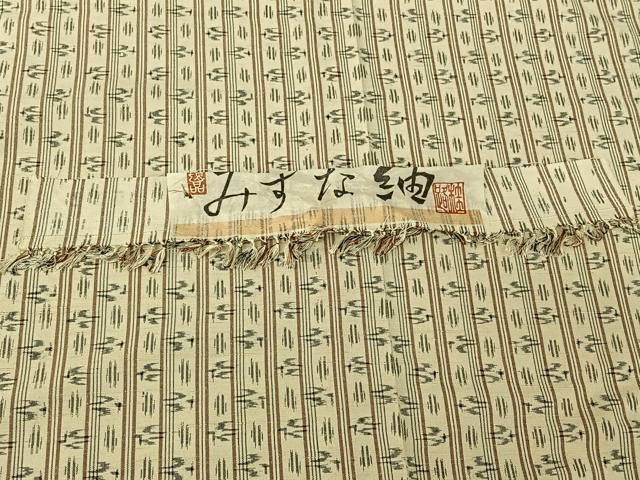 みすな紬